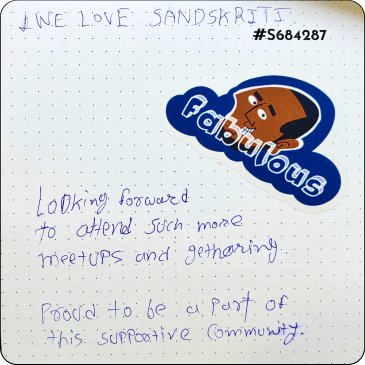 WE LOVE SANDSKRITI.
#S684287
fabulous
Looking forward
to attend such more
meetups and getharing.
Proud to be a part of
this supportive community.